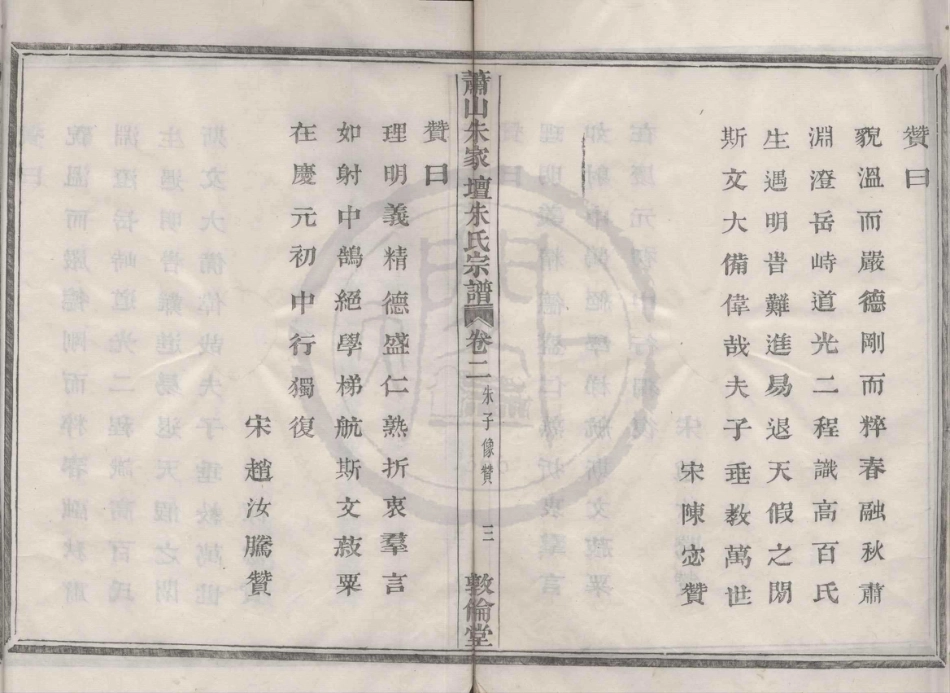 贊曰
貌溫而嚴德剛而粹春融秋肅
淵澄岳峙道光二程識高百氏
生遇明昔難進易退天假之閒
斯文大備偉哉夫子垂教萬世
宋陳宓贊
蕭山朱家壇朱氏宗譜
卷二
朱子像贊
三
敦倫堂
贊曰
理明義精德盛仁熟折衷羣言
如射中鵠絕學梯航斯文菽粟
在慶元初中行獨復
宋趙汝騰贊